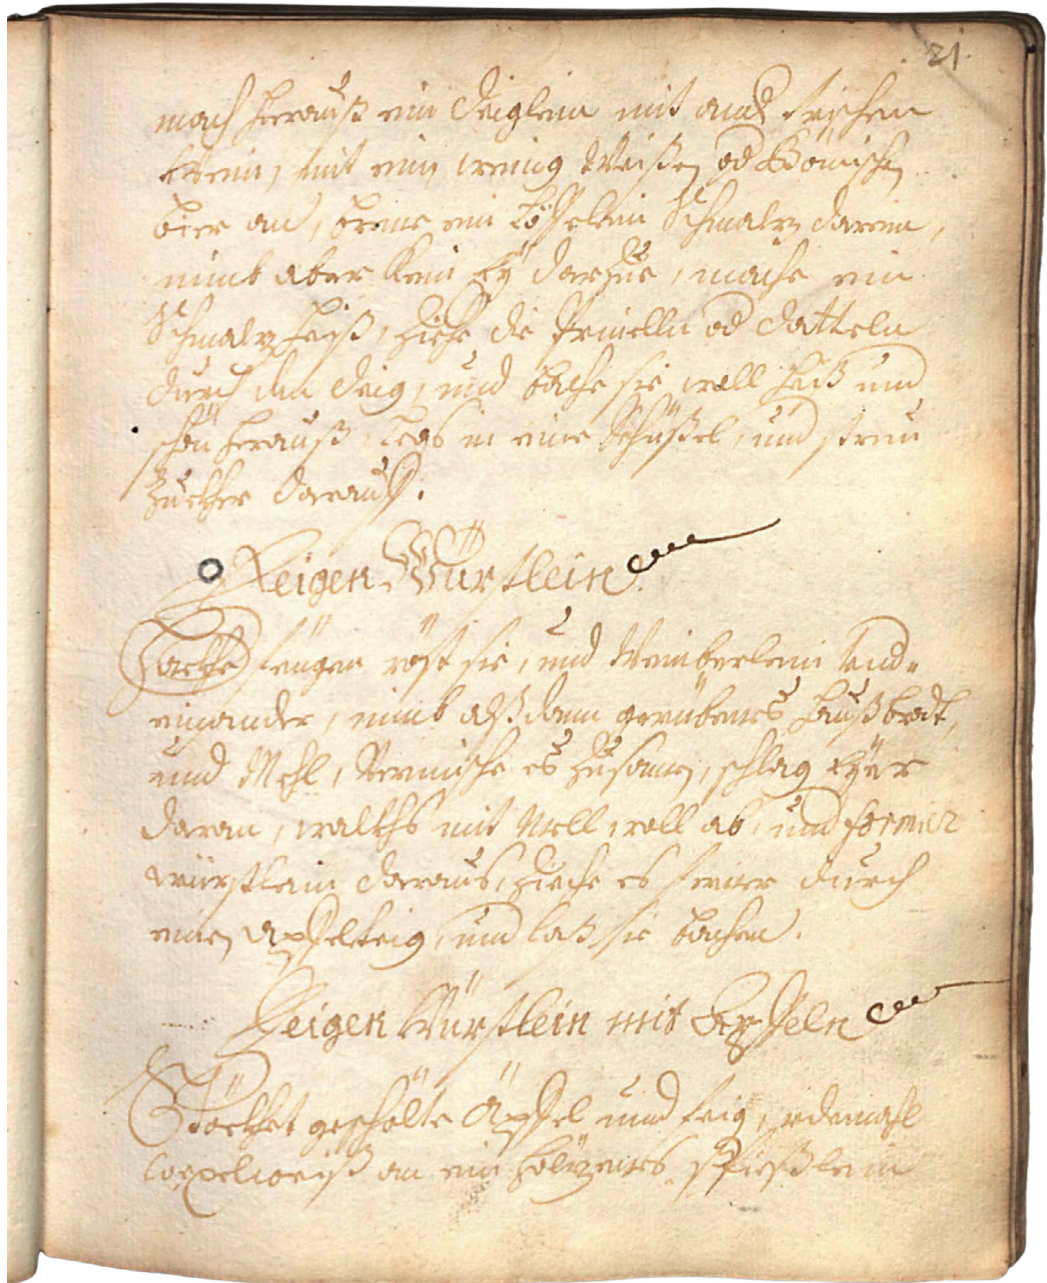 21.
mach herauß ein Teiglein mit
Wein, mit ein wenig Weißen od Bömischen
bier an, brenne ein Löffelein Schmalz darein,
nimb aber kein Ey darzue, mache ein
Schmalz heiß, ziehe die Prinelln od Datteln
durch den Teig, und bache sie woll heiß und
schön herauß, legs in eine Schüßel, und streu
Zuckher darauff.
Feigen Würstlein.
Hackhe feigen röst sie, und Weinberlein Und„
einander, nimb alßdann geribenes haußbrodt,
und Mehl, Vermische es zusamen, schlag Eÿer
daran, walkhs mit Mell woll ab, und formier
würstlein daraus, ziehe es ferner durch
einen Apffelteig, und laß sie bachen.
Feigen Würstlein mit Epffeln
Stöckhet geschölte Äpffel und feig,
Coppelweiß an ein hölzenes Spießlein